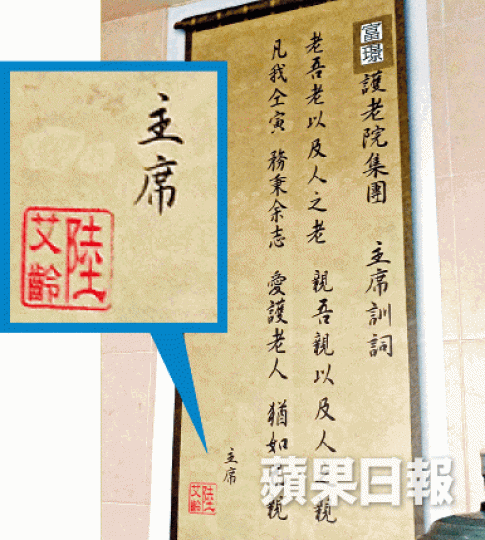 富璟護老院集團 主席訓詞
老吾老以及人之老 親吾親以及人之親
凡我仝寅 務秉余志 愛護老人 猶如親
主席
陸艾齡
主席
陸艾齡
蘋果日報